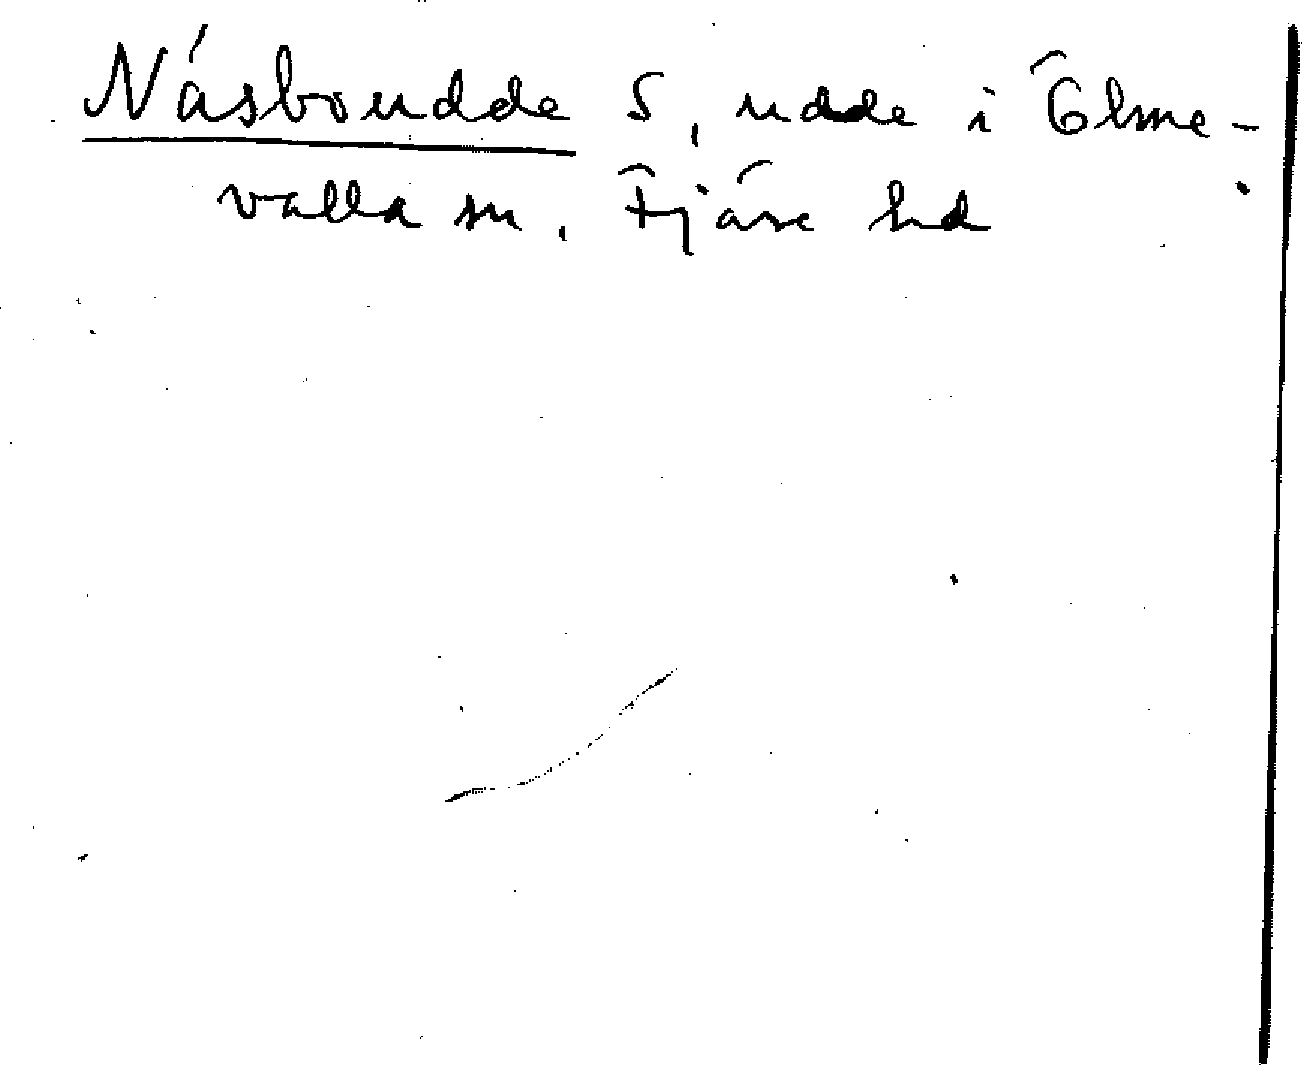 Näsboudde S, udde i Ölme-
valla sn. Fjäre hd